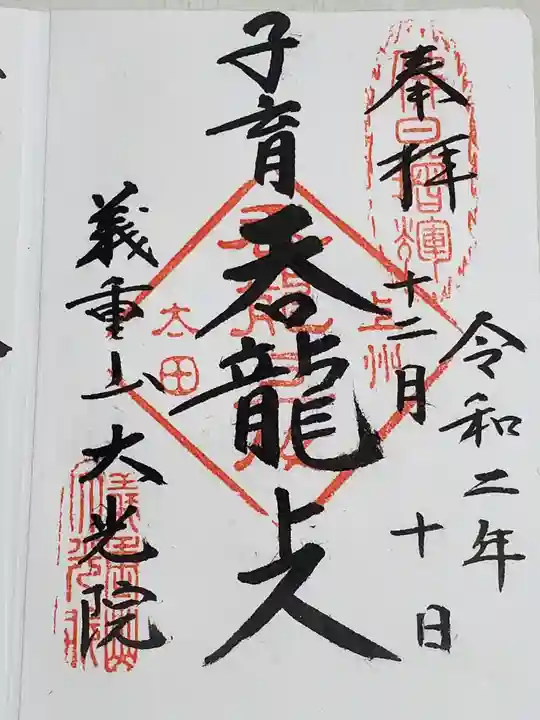 奉拝
令和二年
十二月
十日
子育呑龍上人
上州
太田
義重山大光院